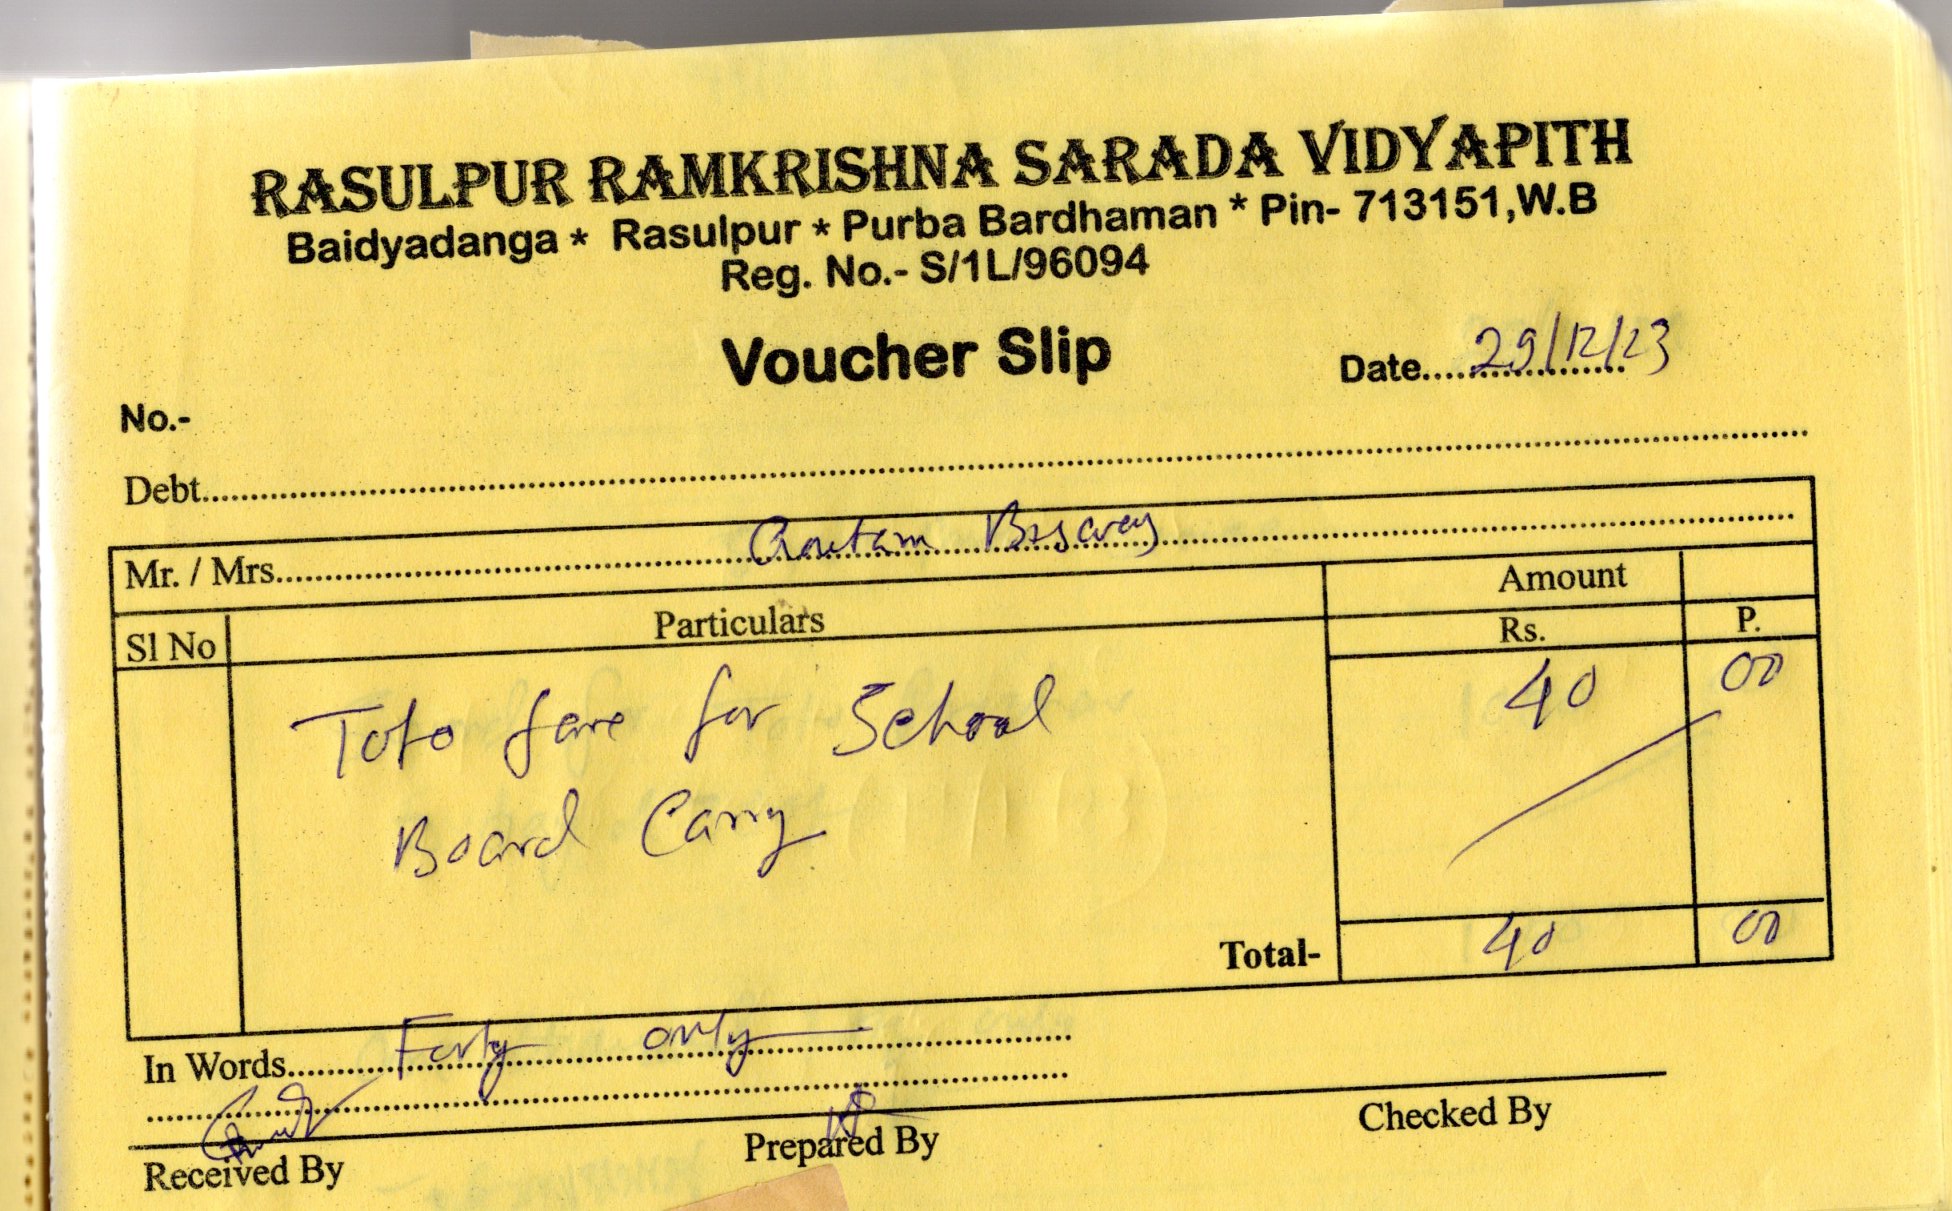 RASULPUR RAMKRISHNA SARADA VIDYAPITH
Baidyadanga * Rasulpur * Purba Bardhaman * Pin- 713151,W.B
Reg. No.- S/1L/96094
Voucher Slip
Date.................. 29/12/23
No.-
Debt..........
Mr. / Mrs.......... Goutam
Sl No Particulars Amount
Rs. P.
Toto fare for School 40 00
Board Carry
Total- 40 00
In Words.......... Forty only
Received By Prepared By Checked By